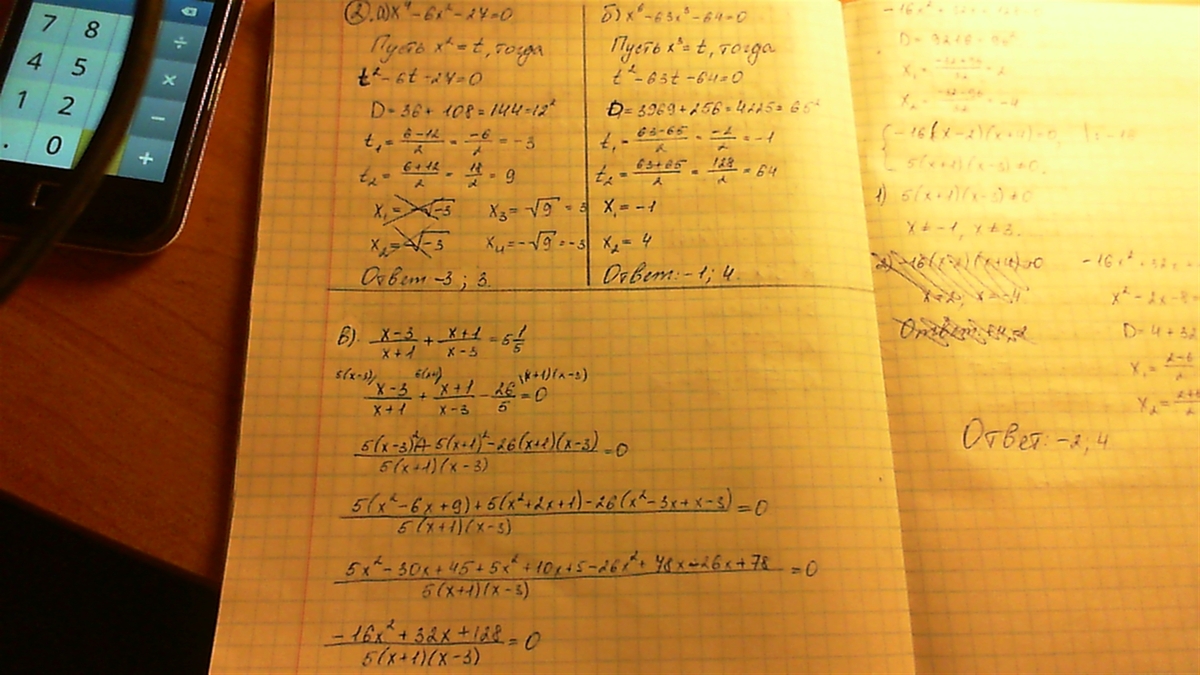 7 8
4 5 ÷
1 2 ×
. 0 −
+
2. а) x⁴-6x²-27=0
Пусть x²=t, тогда
t²-6t-27=0
D=36+108=144=12²
t₁=(6-12)/2=-6/2=-3
t₂=(6+12)/2=18/2=9
x₁=-√-3 x₃=√9=3
x₂=√-3 x₄=-√9=-3
Ответ: -3; 3.
б) x⁶-63x³-64=0
Пусть x³=t, тогда
t²-63t-64=0
D=3969+256=4225=65²
t₁=(63-65)/2=-2/2=-1
t₂=(63+65)/2=128/2=64
x₁=-1
x₂=4
Ответ: -1; 4.
в). (x-3)/(x+1)+(x+1)/(x-3)=5 1/5
(x-3)/(x+1)+(x+1)/(x-3)-26/5=0
(5(x-3)²+5(x+1)²-26(x+1)(x-3))/(5(x+1)(x-3))=0
(5(x²-6x+9)+5(x²+2x+1)-26(x²-3x+x-3))/(5(x+1)(x-3))=0
(5x²-30x+45+5x²+10x+5-26x²+78x-26x+78)/(5(x+1)(x-3))=0
(-16x²+32x+128)/(5(x+1)(x-3))=0
x₁= =2
x₂= =-4
{-16(x-2)(x+4)=0, |:-16
5(x+1)(x-3)≠0.
1) 5(x+1)(x-3)≠0
x≠-1, x≠3.
2) -16(x-2)(x+4)=0
x=2, x=-4
x²-2x-8
D=4+32
Ответ: -2; 4